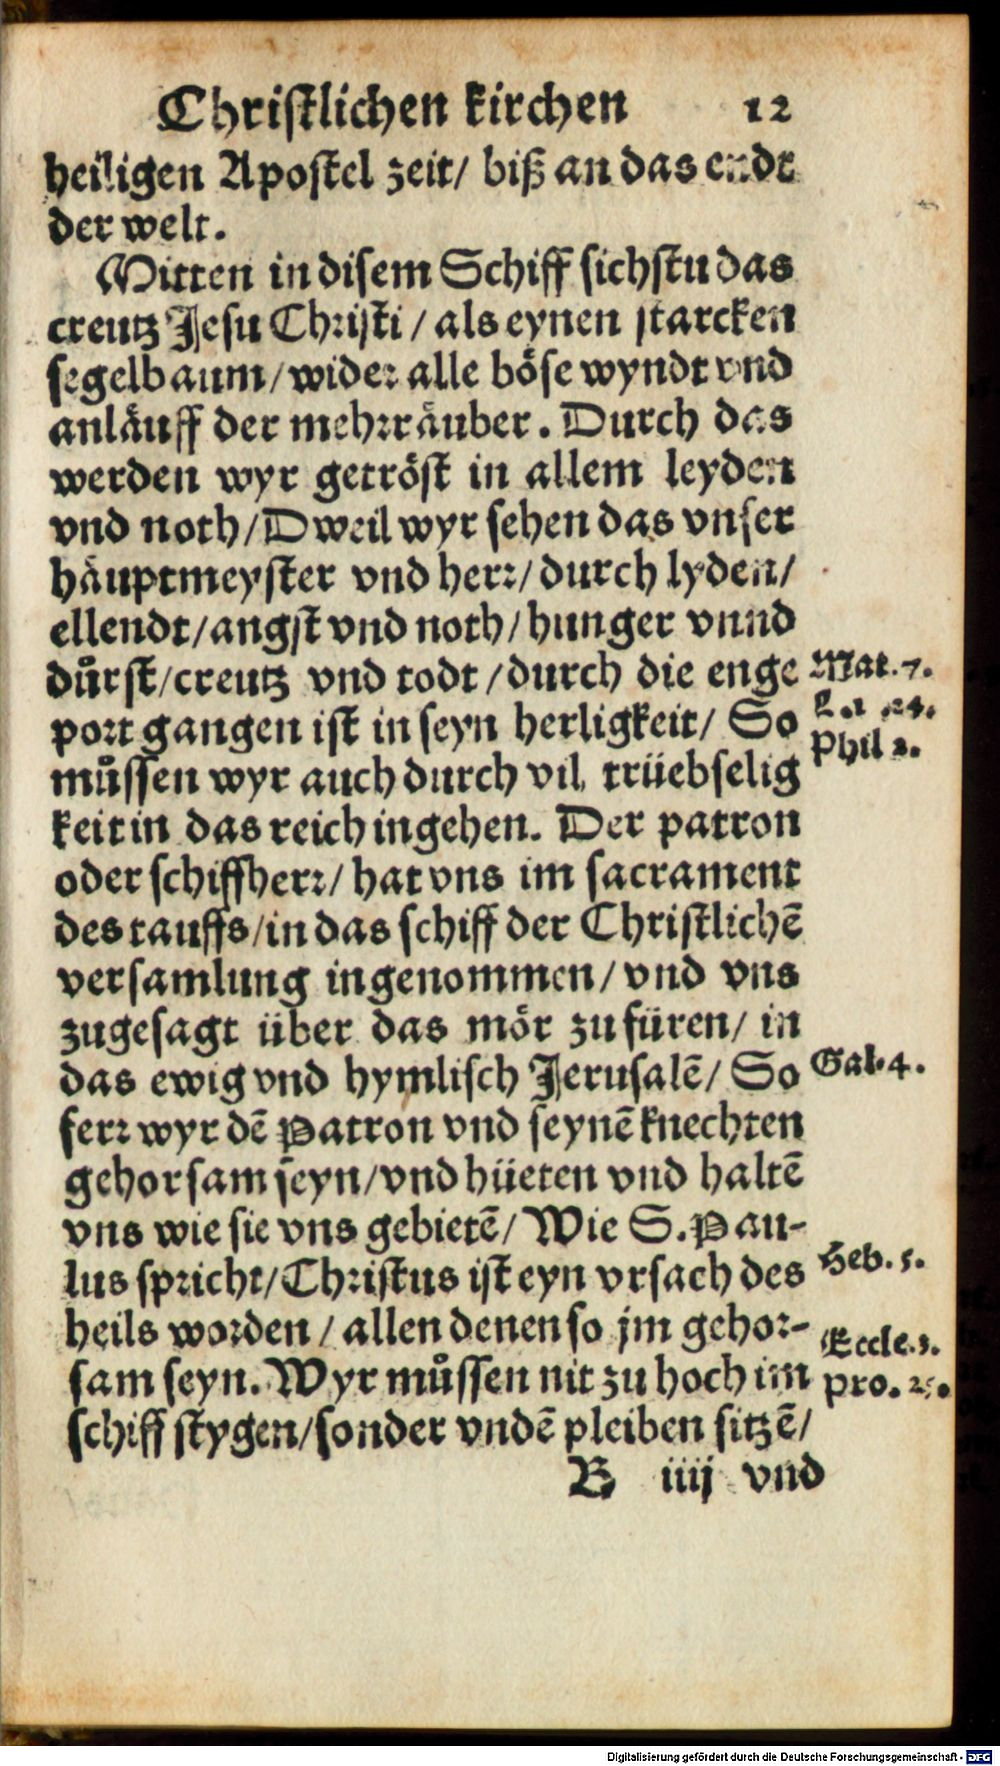 Christlichen kirchen 12
heiligen Apostel zeit/ biß an das endt
der welt.
Mitten in disem Schiff sichstu das
creutz Jesu Christi / als eynen starcken
segelbaum/wider alle böse wyndt vnd
anläuff der mehrräuber. Durch das
werden wyr getröst in allem leyden
vnd noth/Dweil wyr sehen das vnser
häuptmeyster vnd herr/durch lyden/
ellendt/angst vnd noth/hunger vnnd
důrst/creutz vnd todt/durch die enge
port gangen ist in seyn herligkeit/ So
můssen wyr auch durch vil trüebselig
keit in das reich ingehen. Der patron
oder schiffherr/hat vns im sacrament
des tauffs/in das schiff der Christlichē
versamlung ingenommen/vnd vns
zugesagt über das mör zu füren/ in
das ewig vnd hymlisch Jerusalē/ So
ferr wyr dē Patron vnd seynē knechten
gehorsam seyn/vnd hüeten vnd haltē
vns wie sie vns gebietē/ Wie S. Pau-
lus spricht/Christus ist eyn vrsach des
heils worden/ allen denen so jm gehor-
sam seyn. Wyr můssen nit zu hoch im
schiff stygen/sonder vndē pleiben sitzē/
B iiij vnd
Mat. 7.
24.
Phil 2.
Gal. 4.
Heb. 5.
Eccle. 3.
pro. 25.
Digitalisierung gefördert durch die Deutsche Forschungsgemeinschaft - DFG